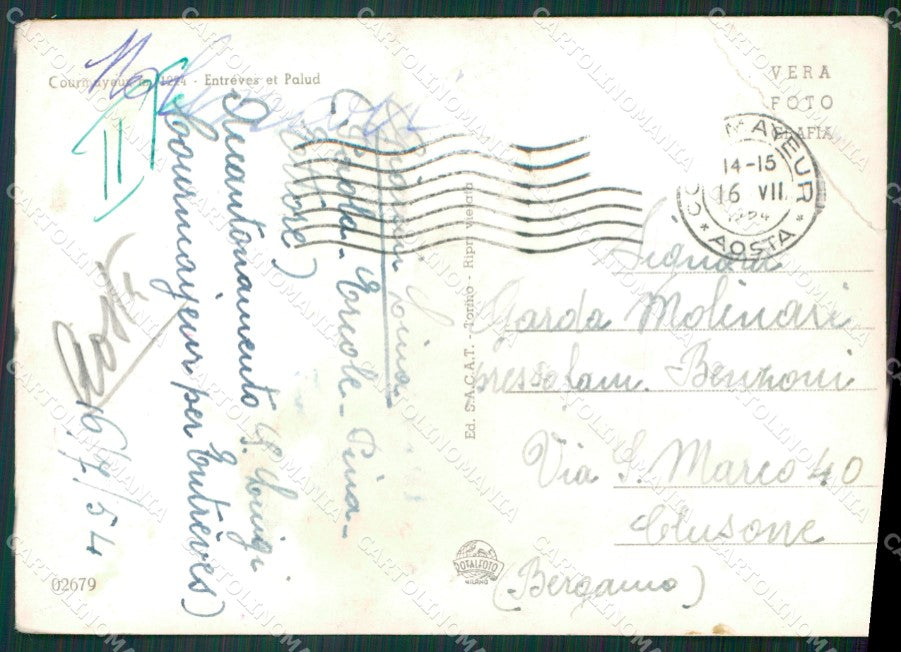 Courmayeur m. 1224 - Entrèves et Palud
VERA
FOTO
GRAFIA
COURMAYEUR
14-15
16 VII.
1954
* AOSTA *
II
Aosta
16/7/54
Courmayeur per Entrèves)
Accantonamento S. Luigi
Ettore)
Ercole - Pina -
Ed. S.A.C.A.T. - Torino - Ripr. vietata
Signora
Garda Molinari
presso fam. Benzoni
Via S. Marco 40
Clusone
(Bergamo)
TOTALFOTO
MILANO
02679
CARTOLINOMANIA